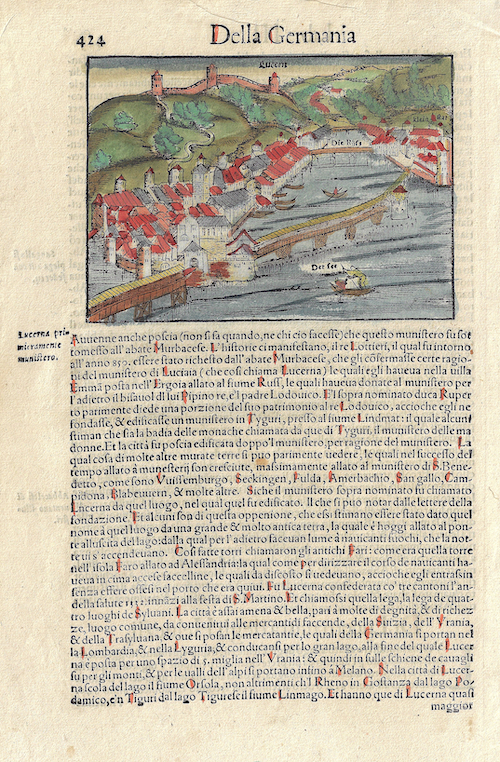 424
Della Germania
Lucern
Die Rüss
Der see
Lucerna pri
mieramente
munistero.
Auuenne anche poscia (non si sa quando, ne chi cio facesse) che questo munistero fu sot
tomesso all'abate Murbacese. L'historie ci manifestano, il re Lottieri, il qual fu intorno
all'anno 850. essere stato richesto dall'abate Murbacese, che gli cōfermasse certe ragio
ni del munistero di Luciaia (che cosi chiama Lucerna) le quali egli haueua nella uilla
Emmā posta nell'Ergoia allato al fiume Russ, le quali haueua donate al munistero per
l'adietro il bisauol di lui Pipino re, e'l padre Lodouico. E'l sopra nominato duca Ruper
to parimente diede una porzione del suo patrimonio al re Lodouico, accioche egli ne
fondasse, & edificasse un munistero in Tyguri, presso al fiume Lindmat: il quale alcuni
stiman che sia la badia delle monache chiamata da que di Tyguri il munistero delle ma
donne. Et la città fu poscia edificata doppo'l munistero, per ragione del munistero. La
qual cosa di molte altre murate terre si puo parimente uedere, le quali nel successo del
tempo allato à munesterij son cresciute, massimamente allato al munistero di S. Bene
detto, come sono Vuissemburgo, Seckingen, Fulda, Amerbachio, San gallo, Cam
pidona, Blabeuuern, & molte altre. Siche il munistero sopra nominato fu chiamato
Lucerna da quel luogo, nel qual fu edificato. Il che si puo notar dalle lettere della
fondazione. Et alcuni son di questa oppenione, che essi stimano essere stato dato quel
nome à quel luogo da una grande & molto antica terra, la quale è hoggi allato al pon
te all'uscita del lago: dalla qual per l'adietro faceuan lume à nauicanti fuochi, che la not
te ui s'accendeuano. Cosi fatte torri chiamaron gli antichi Fari: come era quella torre
nell'isola Faro allato ad Alessandria: la qual come per dirizzare il corso de nauicanti ha-
ueua in cima accese faccelline, le quali da discosto si uedeuano, accioche egli entrassin
senza essere offesi nel porto che era quiui. Fu Lucerna confederata co' tre cantoni l'an-
no della salute 1332. innāzi alla festa di S. Martino. Et chiamossi quella lega, la lega de quat
tro luoghi de Syluani. La città è assai amena & bella, pari à molte di degnità, & di richez
ze, luogo comune, da conuenirui alle mercantili faccende, della Suizia, dell'Vrania,
& della Trasyluana, & que si posan le mercatantie, le quali della Germania si portan nel
la Lombardia, & nella Lyguria, & conducansi per lo gran lago, alla fine del quale Lucer
na è posta per uno spazio di 5. miglia nell'Vrania: & quindi in sulle schiene de cauagli
su per gli monti, & per le ualli dell'alpi si portano insino à Melano. Nella città di Lucer
na scola del lago il fiume Orsola, non altrimenti ch'l Rheno in Costanza dal lago Po-
damico, e'n Tiguri dal lago Tigurese il fiume Linmago. Et hanno que di Lucerna quasi
maggior